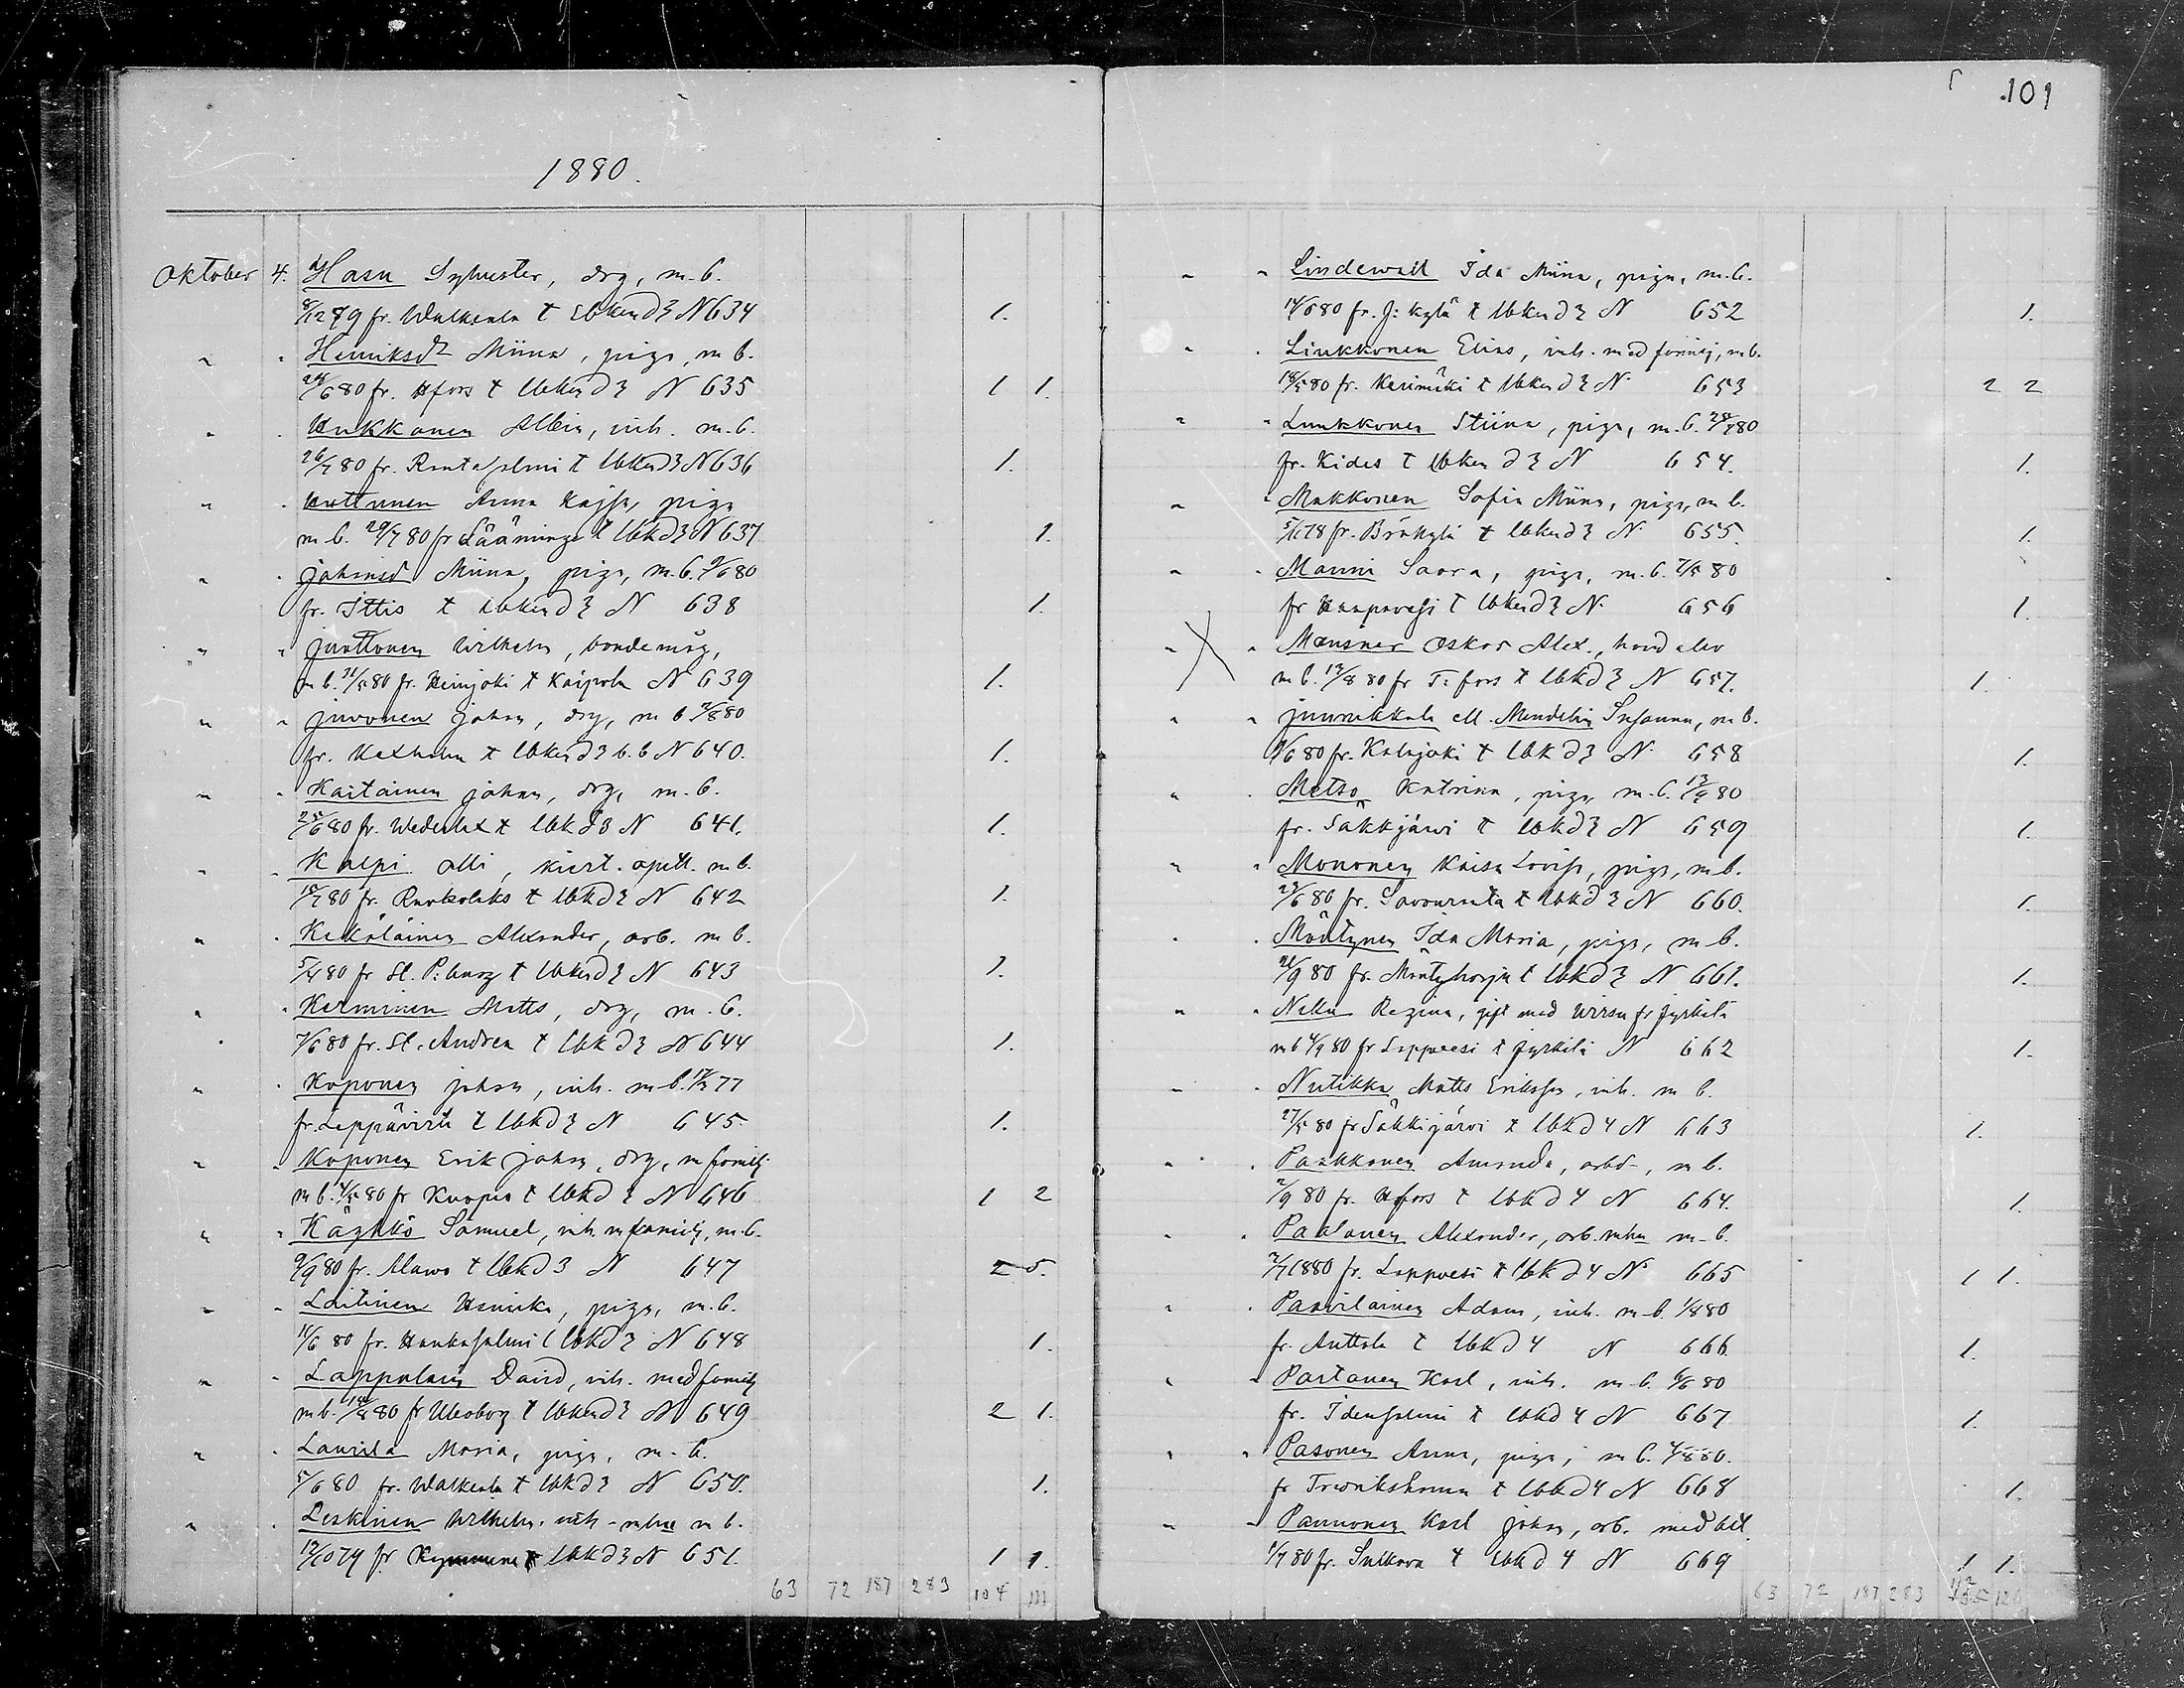 101
1880.
Oktober 4. Hasu Sylvester, drg, m. b.
8/12 79 fr. Walkeala t lbken d 3 N 634 1.
" " Henriksdr Miina, piga, m b.
24/6 80 fr. Hfors t lbken d 3 N 635 1 1.
" " Hukkanen Albin, inh. m. b.
26/7 80 fr. Rantasalmi t lbken d 3 N 636 1.
" " Huttunen Anna Kajsa, piga
m b. 29/7 80 fr Sääminge t lbk d 3 N 637 1.
" " Johansd Miina, piga, m. b. 9/6 80
fr. Ittis t lbken d 3 N 638 1.
" " Junttonen Wilhelm, bondemåg,
m b. 31/5 80 fr. Heinjoki t Kaipola N 639 1.
" " Juvonen Johan, drg, m b. 2/8 80
fr. Kexholm t lbken d 3 b. b N 640. 1.
" " Kaitainen Johan, drg, m. b.
25/6 80 fr. Wederlax t lbk d 3 N 641. 1.
" " Kalpi Olli, kiert. opett. m b.
18/7 80 fr. Ruokolaks t lbk d 3 N 642 1.
" " Kekäläinen Alexander, arb. m b.
5/4 80 fr St. P:burg t lbken d 3 N 643 1.
" " Kerminen Matts, drg, m. b.
7/6 80 fr. St. Andrea t lbk d 3 N 644 1.
" " Koponen Johan, inh. m b. 77
fr. Leppävirta t lbk d 3 N 645 1.
" " Koponen Erik Johan, drg, m familj
m b. 4/5 80 fr Kuopio t lbk d 3 N 646 1 2
" " Käyhkö Samuel, inh. m familj, m. b.
9/9 80 fr. Alawo t lbk d 3 N 647 2 5.
" " Laitinen Henrika, piga, m. b.
11/6 80 fr. Hankasalmi t lbk d 3 N 648 1.
" " Lappalain David, inh. med familj
m b. 14/8 80 fr Uleåborg t lbken d 3 N 649 2 1.
" " Laurila Maria, piga, m. b.
5/6 80 fr. Walkeala t lbk d 3 N 650. 1.
" " Leskinen Wilhelm. inh - mhu m b.
12/10 79 fr. Kymmene t lbk d 3 N 651. 1 1.
63 72 187 283 104 111
" " Lindewall Ida Miina, piga, m. b.
14/6 80 fr. J: kylä t lbken d 3 N 652 1.
" " Liukkonen Elias, inh. med familj, m b.
18/5 80 fr. Kerimäki t lbken d 3 N 653 2 2
" " Luukkonen Stiina, piga, m. b. 24/7 80
fr. Kides t lbken d 3 N 654. 1.
" " Makkonen Sofia Miina, piga, m b.
5/11 78 fr. Bräkylä t lbken d 3 N 655. 1.
" " Manni Saara, piga, m. b. 7/5 80
fr Haapavesi t lbken d 3 N 656 1.
" " Mausner Oskar Alex., hand elev
m b. 13/8 80 fr T: fors t lbk d 3 N 657. 1.
" " Juunikkala ell. Mendelin Susanna, m b.
9/6 80 fr. Kalajoki t lbk d 3 N 658 1.
" " Metso Katrina, piga, m. b. 13/9 80
fr. Säkkjärvi t lbk d 3 N 659 1.
" " Mononen Kaisa Lovisa, piga, m b.
29/6 80 fr. Savonranta t lbk d 3 N 660. 1.
" " Mäntynen Ida Maria, piga, m b.
21/9 80 fr. Mäntyharju t lbk d 3 N 661. 1.
" " Nikn Regina, gift med Wirsu fr Jyrkilä
m b 4/9 80 fr Lappvesi t Jyrkilä N 662 1.
" " Nutikka Matts Eriksson, inh. m b.
27/5 80 fr Säkkijärvi t lbk d 4 N 663 1.
" " Paakkonen Amanda, arbd-, m b.
2/9 80 fr. Hfors t lbk d 4 N 664. 1.
" " Paalanen Alexander, arb. mhu m b.
2/7 1880 fr. Lappvesi t lbk d 4 N 665 1 1.
" " Paavilainen Adam, inh. m b. 1/8 80
fr. Anttola t lbk d 4 N 666 1.
" " Partanen Karl, inh. m b. 6/6 80
fr. Idensalmi t lbk d 4 N 667 1.
" " Pasonen Anna, piga, m b. 4/8 80.
fr Fredrikshamn t lbk d 4 N 668 1.
" " Paunonen Karl Johan, arb. med
1/7 80 fr. Sulkava t lbk d 4 N 669 1 1.
63 72 187 283 112 126